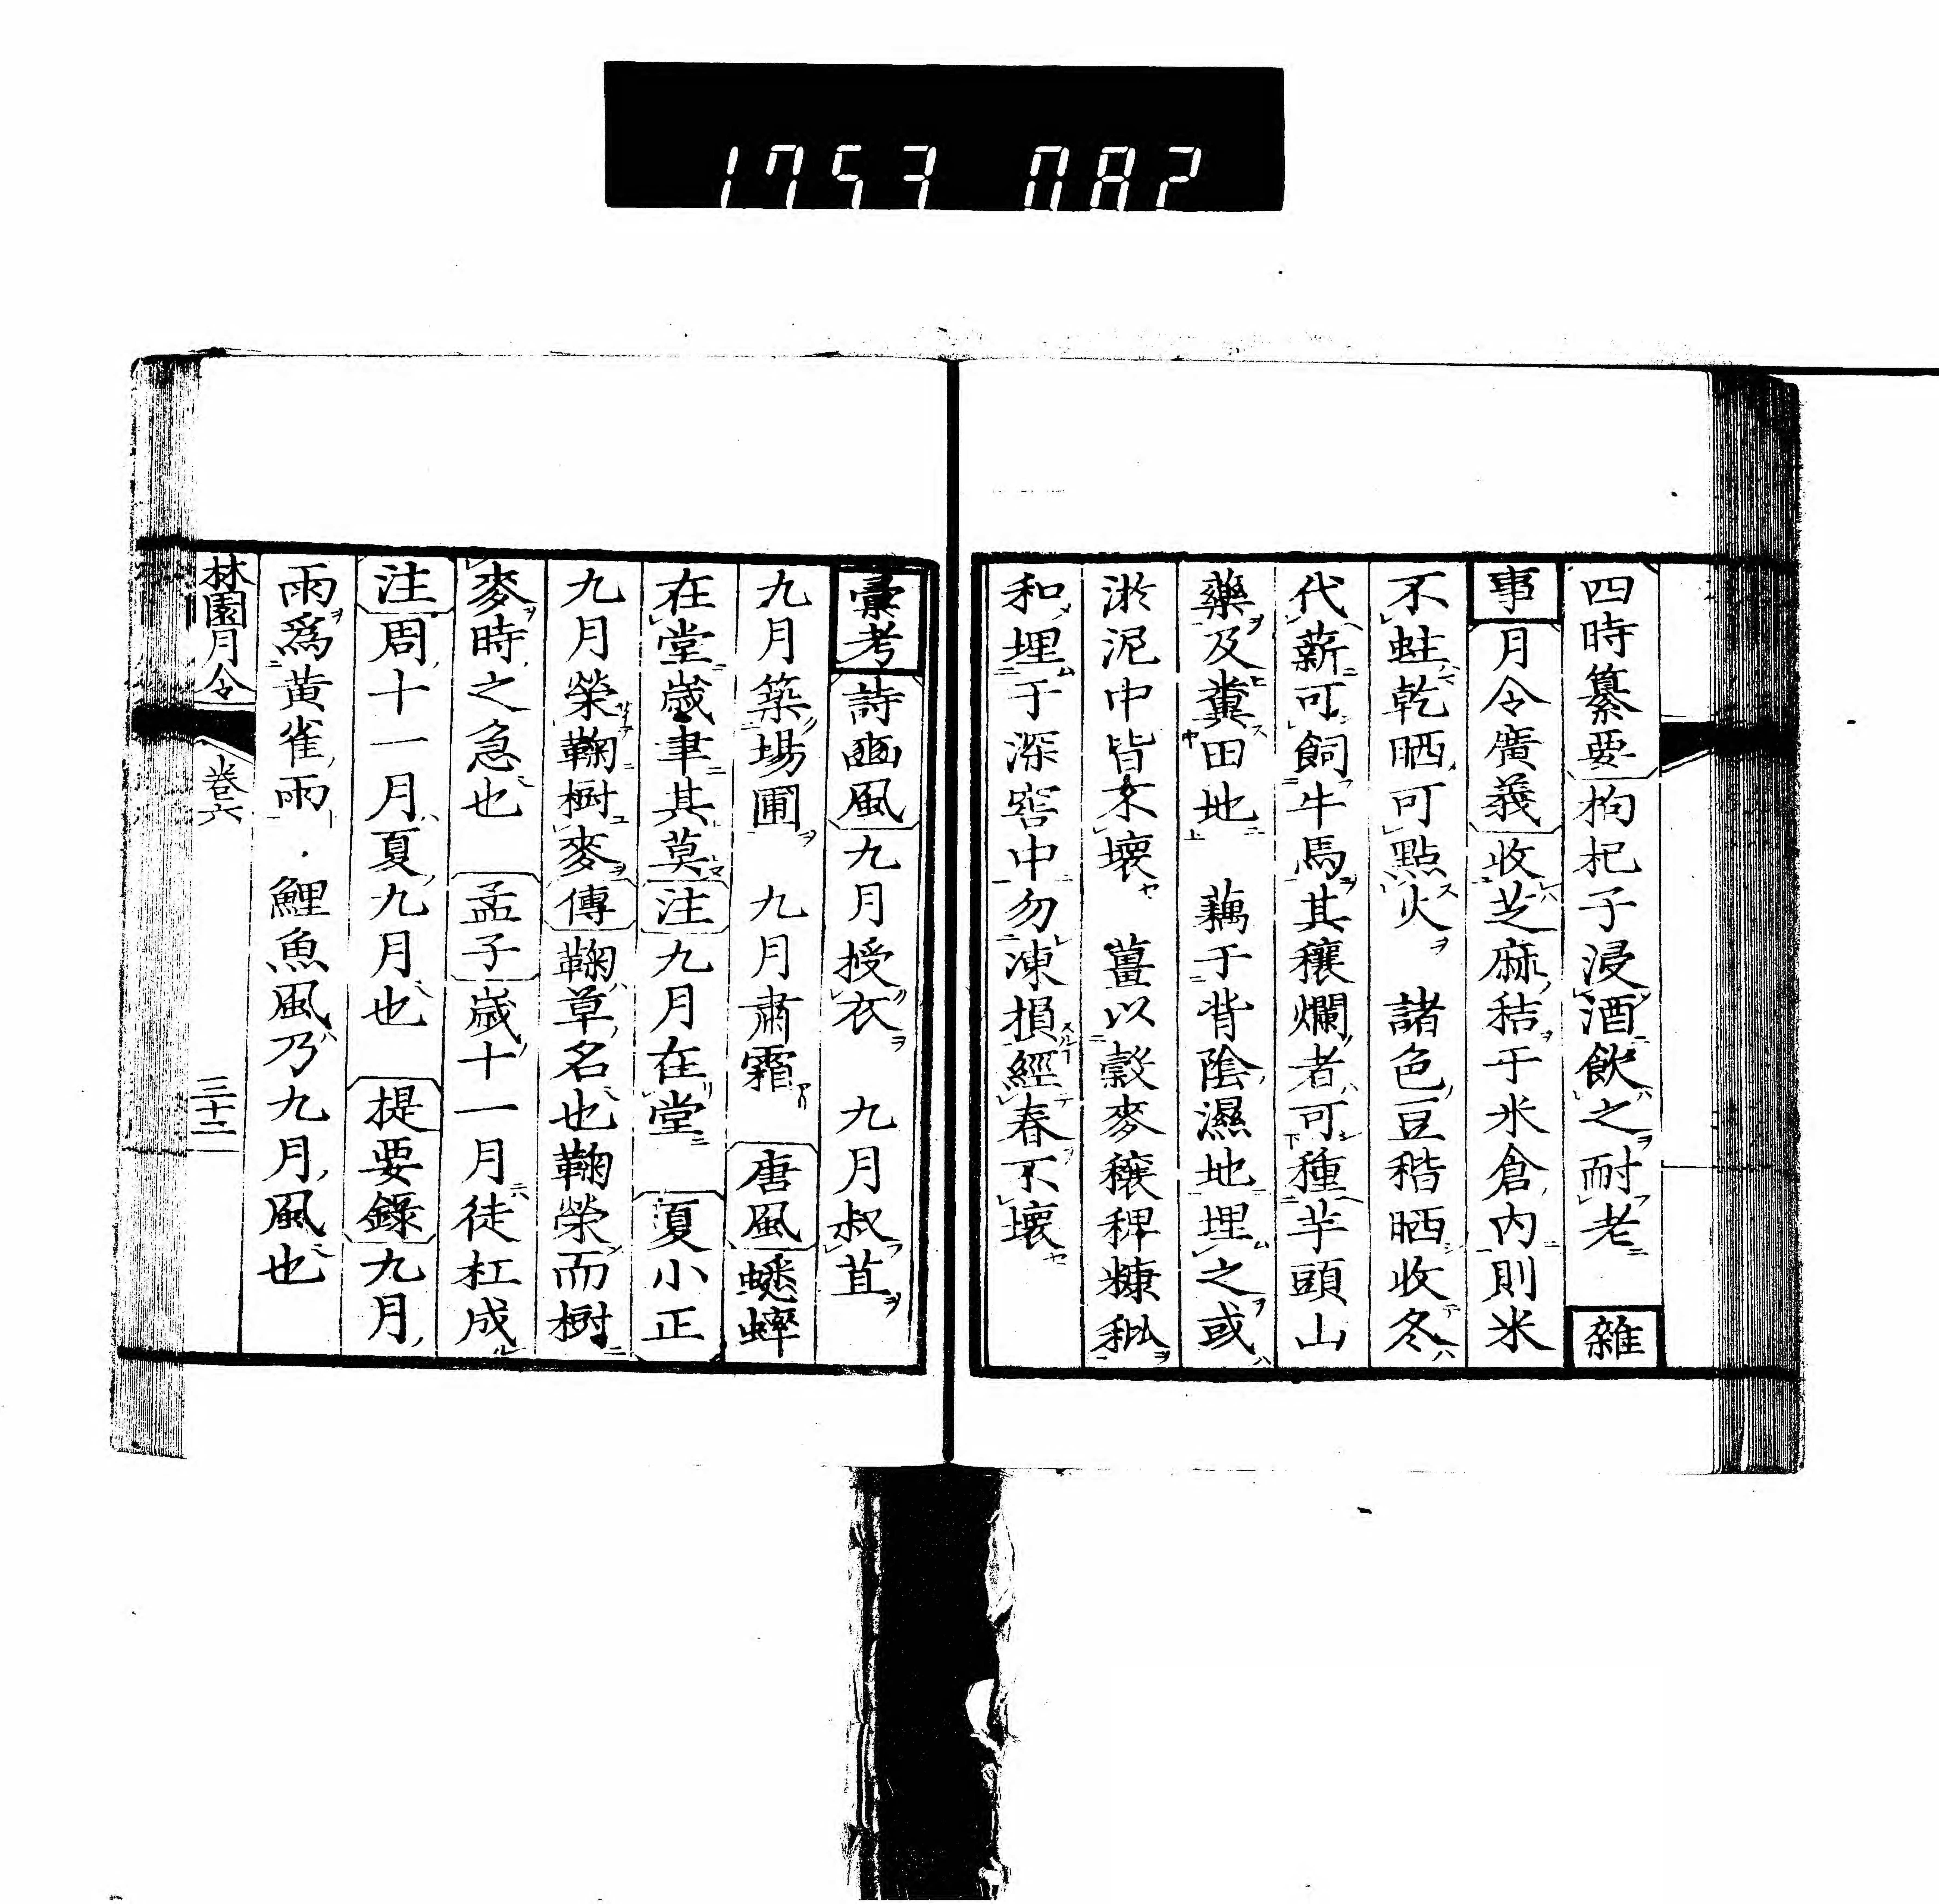 1753 082
四時纂要枸杞子浸酒飲之耐老　雜
事月令廣義收芝麻秸于米倉内則米
不蛀乾晒可點火　諸色豆稭晒收冬
代薪可飼牛馬其穰爛者可種芋頭山
藥及糞田地　藕于背陰濕地埋之或
淤泥中皆不壞　薑以穀麥穰稗糠秕
和埋于深窖中勿凍損經春不壞
彙考詩豳風九月授衣　九月叔苴
九月築場圃　九月肅霜　唐風蟋蟀
在堂歲聿其莫注九月在堂　夏小正
九月榮鞠樹麥傳鞠草名也鞠榮而樹
麥時之急也　孟子歲十一月徒杠成
注周十一月夏九月也　提要錄九月
雨爲黃雀雨　鯉魚風乃九月風也
林園月令　卷六　三十二